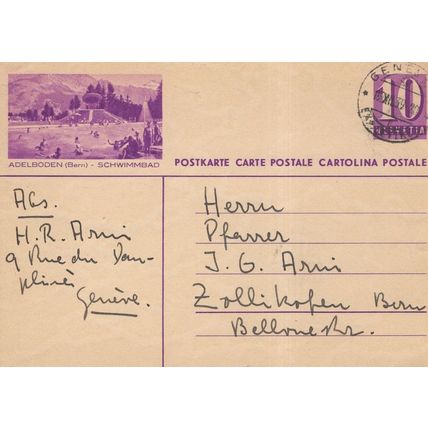 ADELBODEN (Bern) - SCHWIMMBAD
GENÈ
10
HELVETIA
POSTKARTE CARTE POSTALE CARTOLINA POSTALE
Abs.
H. R. Arni
9 Rue du Dau-
phiné
Genève.
Herrn
Pfarrer
J. G. Arni
Zollikofen Bern